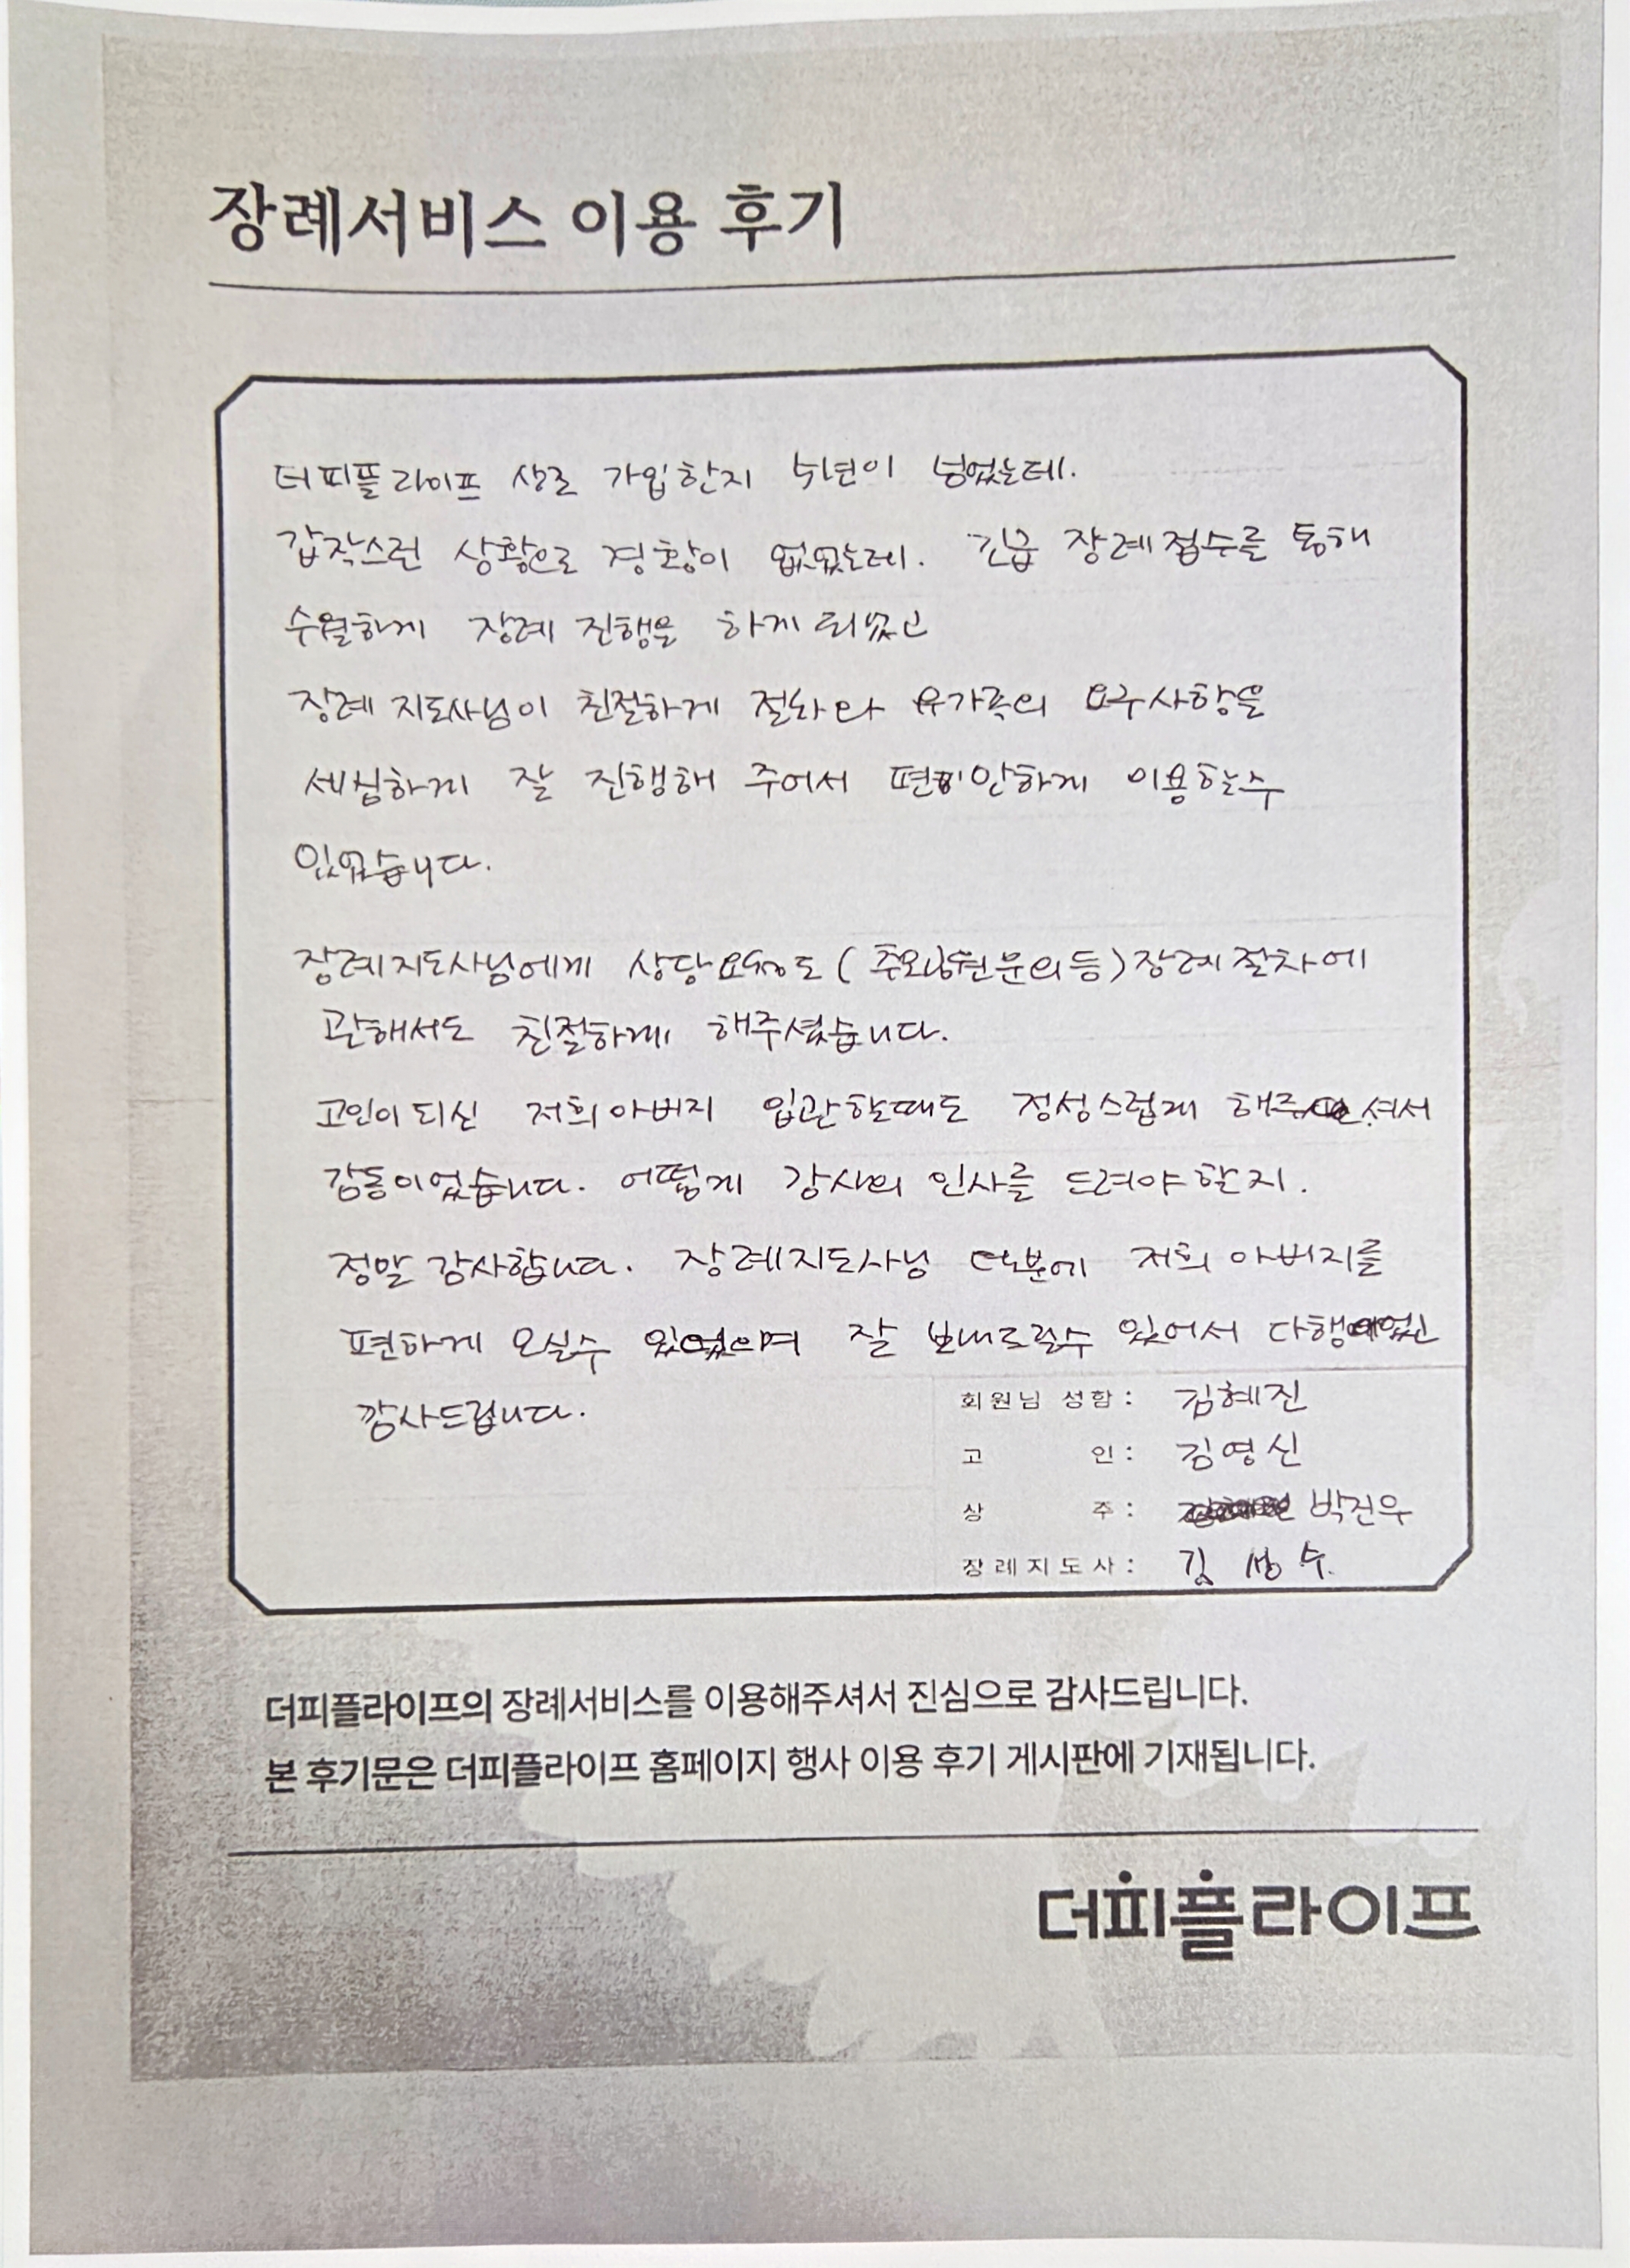 장례서비스 이용 후기
더피플라이프 상조 가입한지 수년이 넘었는데.
갑작스런 상황으로 경황이 없었는데. 긴급 장례접수를 통해
수월하게 장례 진행을 하게 되었고
장례 지도사님이 친절하게 절차와 유가족의 요구사항을
세심하게 잘 진행해 주어서 편안하게 이용할수
있었습니다.
장례지도사님에게 상담 (추모공원문의등) 장례절차에
관해서도 친절하게 해주셨습니다.
고인이 되신 저희 아버지 입관할때도 정성스럽게 해주셔서
감동이었습니다. 어떻게 감사의 인사를 드려야 할지.
정말 감사합니다. 장례지도사님 덕분에 저희 아버지를
편하게 모실수 있었으며 잘 보내드릴수 있어서 다행이었고
감사드립니다.
회원님 성함: 김혜진
고 인: 김영신
상 주: 박진우
장례지도사: 김 성 수.
더피플라이프의 장례서비스를 이용해주셔서 진심으로 감사드립니다.
본 후기문은 더피플라이프 홈페이지 행사 이용 후기 게시판에 기재됩니다.
더피플라이프